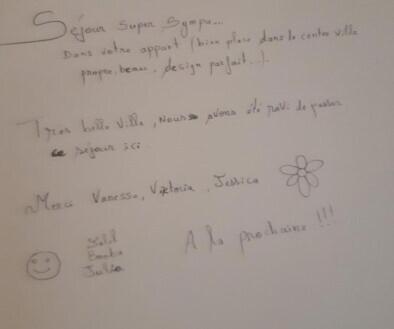 Séjour Super Sympa...
Dans votre appart (bien placé dans le centre ville
propre, beau, design parfait...).
Tres belle ville, nous avons été ravi de passer
ce séjour ici.
Merci Vanessa, Victoria, Jessica
A la prochaine !!!
Julia